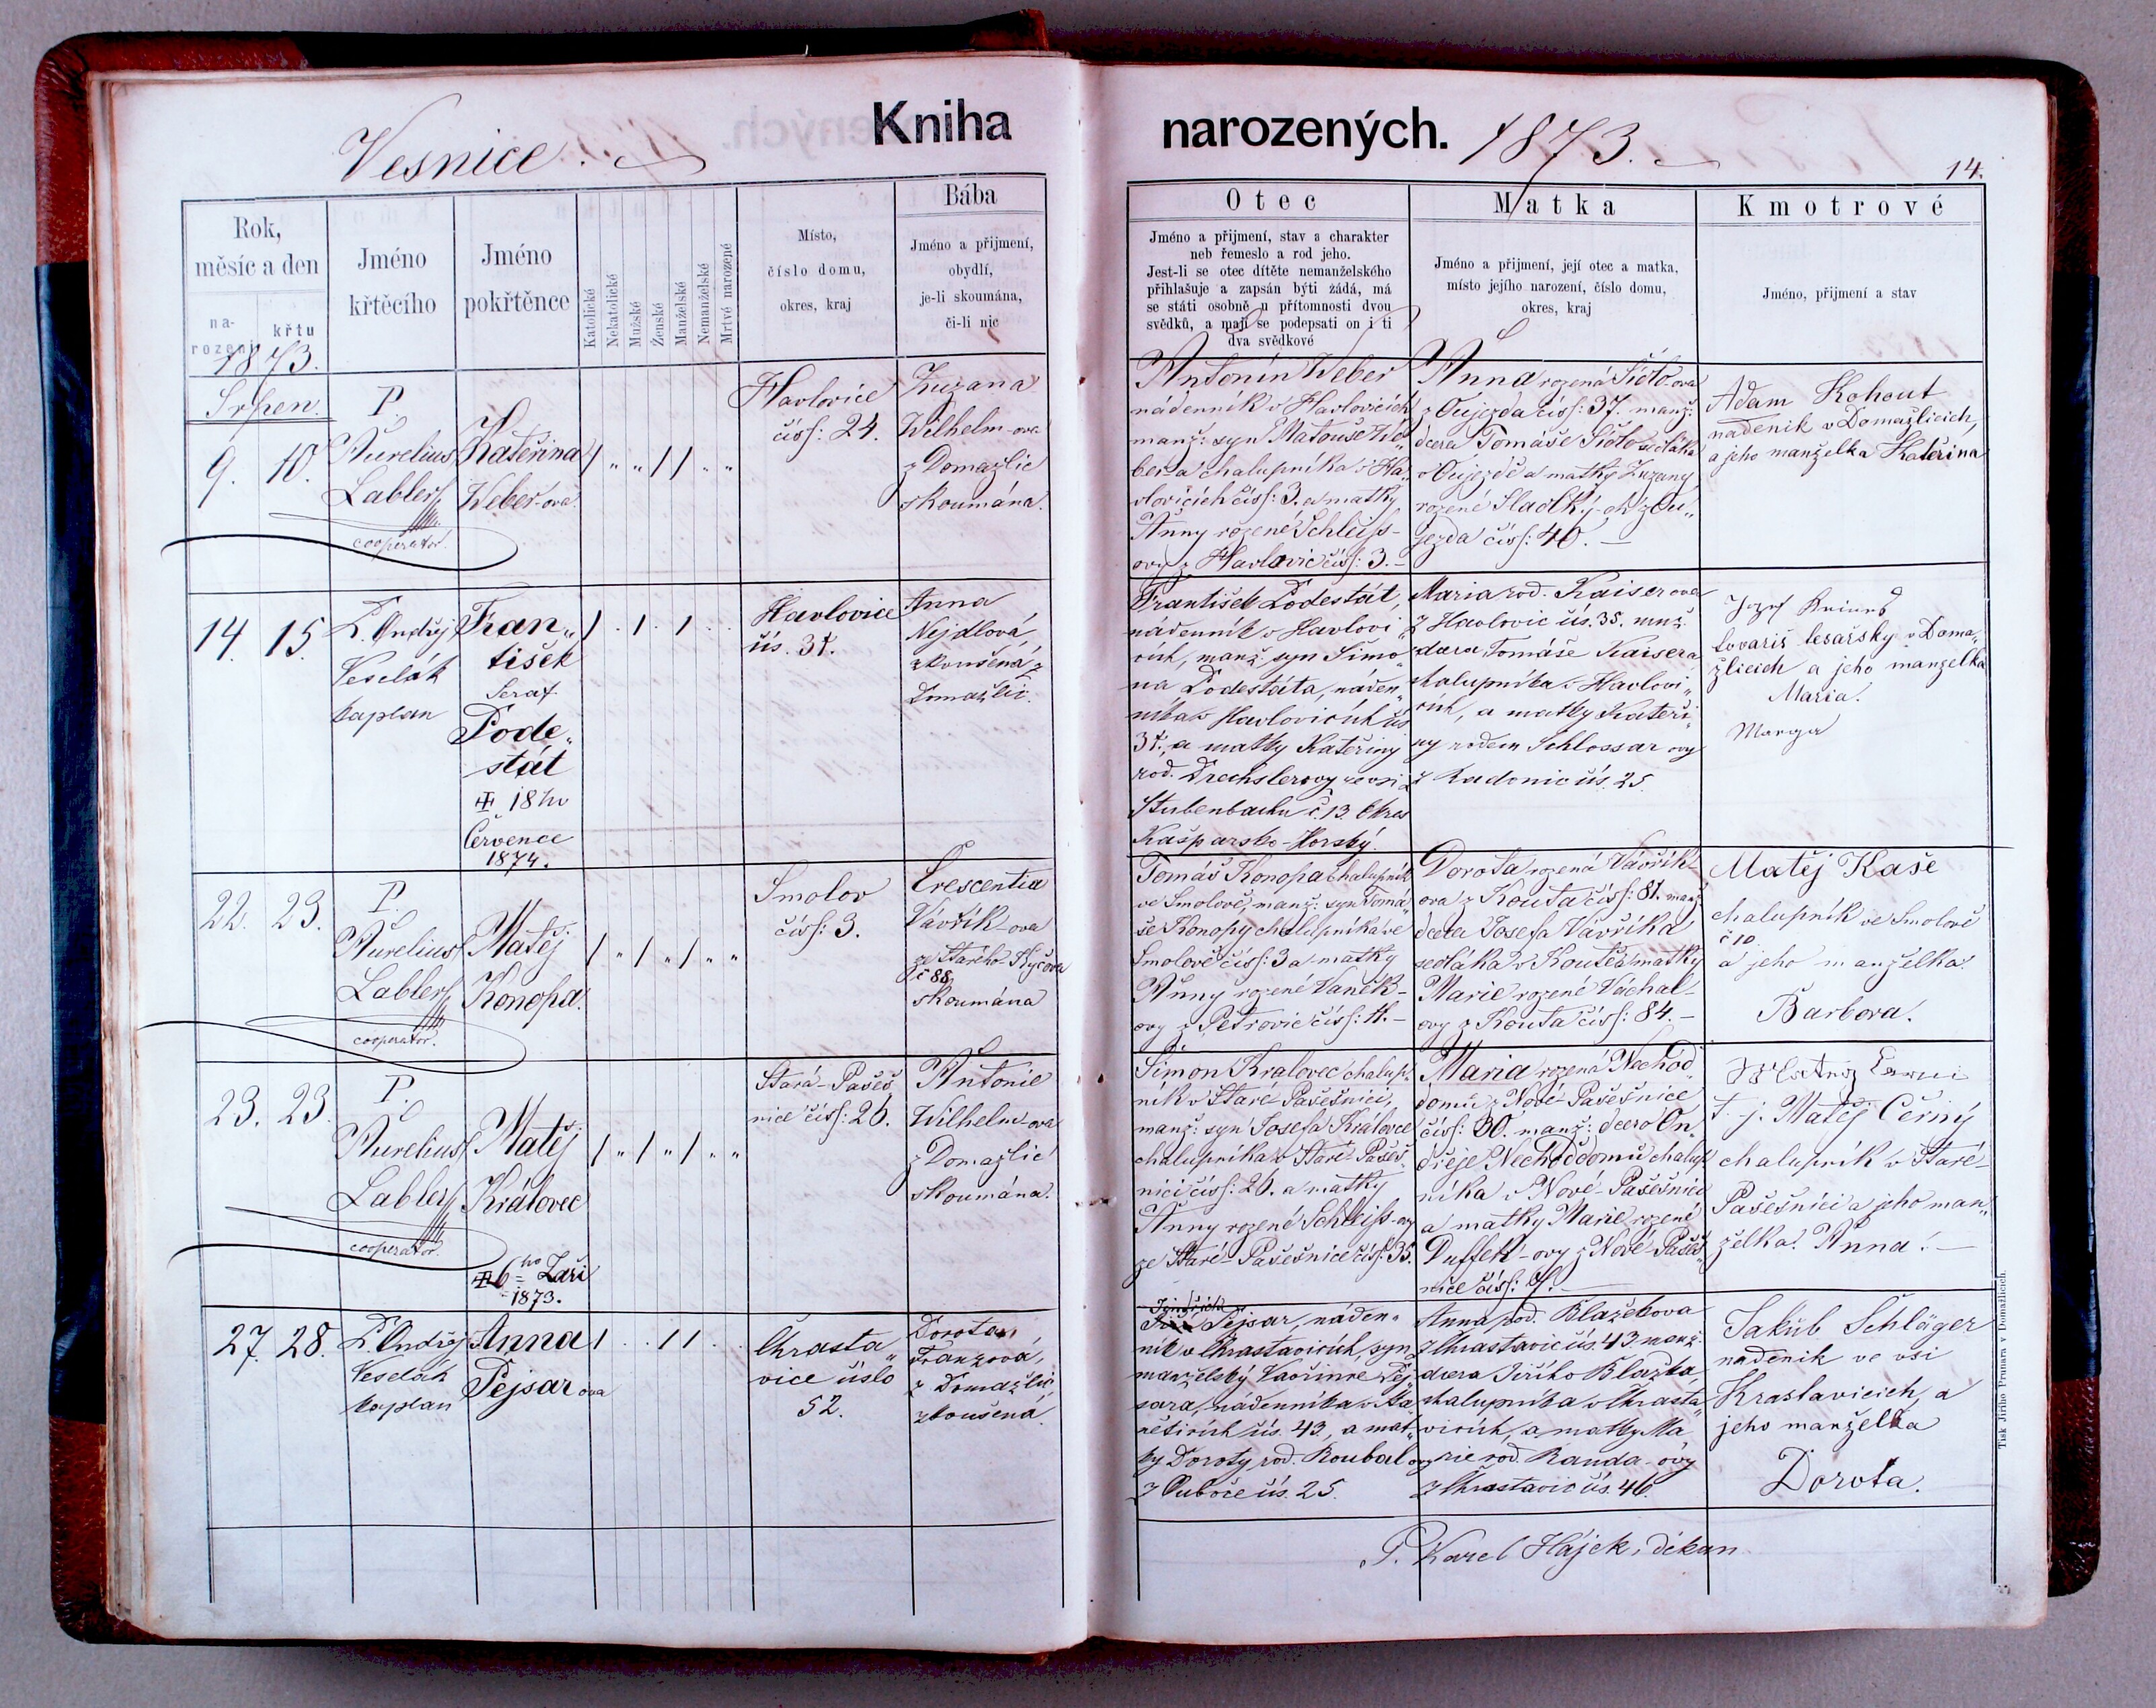 Vesnice.
Kniha
narozených. 1873.
14.
Rok,
měsíc a den
na-
rození
křtu
1873.
Jméno
křtěcího
Jméno
pokřtěnce
Katolické
Nekatolické
Mužské
Ženské
Manželské
Nemanželské
Mrtvě narozené
Místo,
číslo domu,
okres, kraj
Bába
Jméno a přijmení,
obydlí,
je-li skoumána,
či-li nic
Otec
Jméno a přijmení, stav a charakter
neb řemeslo a rod jeho.
Jest-li se otec dítěte nemanželského
přihlašuje a zapsán býti žádá, má
se státi osobně u přítomnosti dvou
svědků, a mají se podepsati on i ti
dva svědkové
Matka
Jméno a přijmení, její otec a matka,
místo jejího narození, číslo domu,
okres, kraj
Kmotrové
Jméno, přijmení a stav
Srpen.
9. 10.
P.
Aurelius
Labler
cooperator.
Kateřina
Weber-ova.
Havlovice
čís: 24.
Zuzana
Wilhelm-ova
z Domažlic
skoumána.
Antonín Weber
nádenník v Havlovicích
manž: syn Matouše We„
bera chalupníka v Ha„
vlovicích čís: 3. a matky
Anny rozené Schleiss-
ovy z Havlovic čís: 3.-
Anna rozená
z Oujezda čís: 37. manž:
dcera Tomáše sedláka
v Oujezdě a matky Zuzany
rozené Sladký-ch z Ou„
jezda čís: 40. —
Adam Kohout
nadenik v Domažlicich,
a jeho manželka Kateřina
14. 15.
P. Ondřej
Veselák
kaplan
Fran„
tišek
Seraf.
Pode„
stát
18ho
Července
1874.
Havlovice
čís. 31.
Anna
Nejdlová,
zkoušená z
Domažlic.
František Podestát,
nádenník v Havlovi„
cích, manž. syn Šimo„
na Podestáta, náden„
níka v Havlovicích čís
31., a matky Kateřiny
rod. Drechslerovy ze vsi
Stubenbachu č. 13. Okres
Kašparsko-Horský.
Maria rod. Kaiserova
z Havlovic čís. 35. manž.
dcera Tomáše Kaisera
chalupníka v Havlovi„
cích, a matky Kateři„
ny rodem Schlossarovy
z Radonic čís. 25.
Jozef
tovariš tesařsky v Doma„
žlicich a jeho manzelka
Maria.
22. 23.
P.
Aurelius
Labler
cooperator.
Matěj
Konopa.
Smolov
čís: 3.
Crescentia
Vavřík-ova
ze Starého-Kyčova
č 88
skoumána
Tomáš Konopa chalupník
ve Smolově, manž: syn Tomá„
še Konopy chalupníka ve
Smolově čís: 3 a matky
Anny rozené Vaněk-
ovy z Petrovic čís: 11.-
Dorota rozená Vavřík-
ova z Kouta čís: 81. manž
dcera Josefa Vavříka
sedláka v Koutě a matky
Marie rozené Váchal-
ovy z Kouta čís: 84.-
Matěj Kaše
chalupník ve Smolově
č 10
a jeho manželka
Barbora.
23. 23.
P.
Aurelius
Labler
cooperator.
Matěj
Královec
6ho Září
1873.
Stará-Pašeš„
nice čís: 26.
Antonie
Wilhelm-ova
z Domažlic
skoumána.
Šimon Kralovec chalup„
ník v Staré Pašešnici,
manž: syn Josefa Královce
chalupníka v Staré-Pašeš„
nici čís: 26. a matky
Anny rozené Schleiss-ovy
ze Staré-Pašešnice čís: 35.
Maria rozená Nechod„
domů z Nové-Pašešnice
čís: 30. manž: dcera On„
dřeje Nechoddomů chalup„
níka v Nové-Pašešnici
a matky Marie rozené
Duffek-ovy z Nové-Pašeš„
nice čís:
t. j. Matěj Černý
chalupník v Staré-
Pašešnici a jeho man„
želka Anna.—
27. 28.
P. Ondřej
Veselák
kaplan
Anna
Pejsarova
Chrasta„
vice číslo
52.
Dorota
Franzová,
z Domažlic,
zkoušená.
Jindřich
Pejsar, náden„
ník v Chrastavicích, syn
manželský Vavřince Pej„
sara, nádenníka v Sta„
nětících čís. 43, a mat„
ky Doroty rod. Roubalovy
z Luboče čís. 25.
Anna rod. Blažekova
z Chrastavic čís. 43, manž.
dcera Jiřího Blažka,
chalupníka v Chrasta„
vicích, a matky Ma„
rie rod. Randa-ovy
z Chrastavic čís. 46.
Jakub Schläger
nadenik ve vsi
Krastavicich, a
jeho manželka
Dorota.
P. Karel Hájek, děkan
Tisk Jiřího Prunara v Domažlicích.